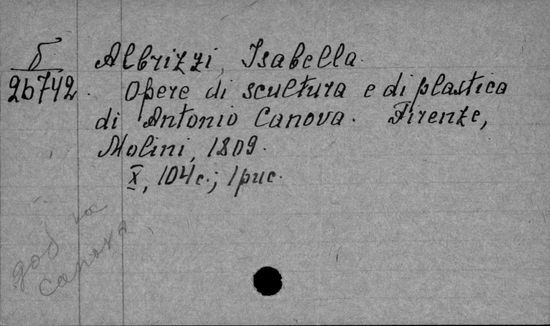 Б
26742
Albrizzi, Isabella.
Opere di scultura e di plastica
di Antonio Canova. Firenze,
Molini, 1809.
X, 104 с.; 1 рис.
доб на
canova